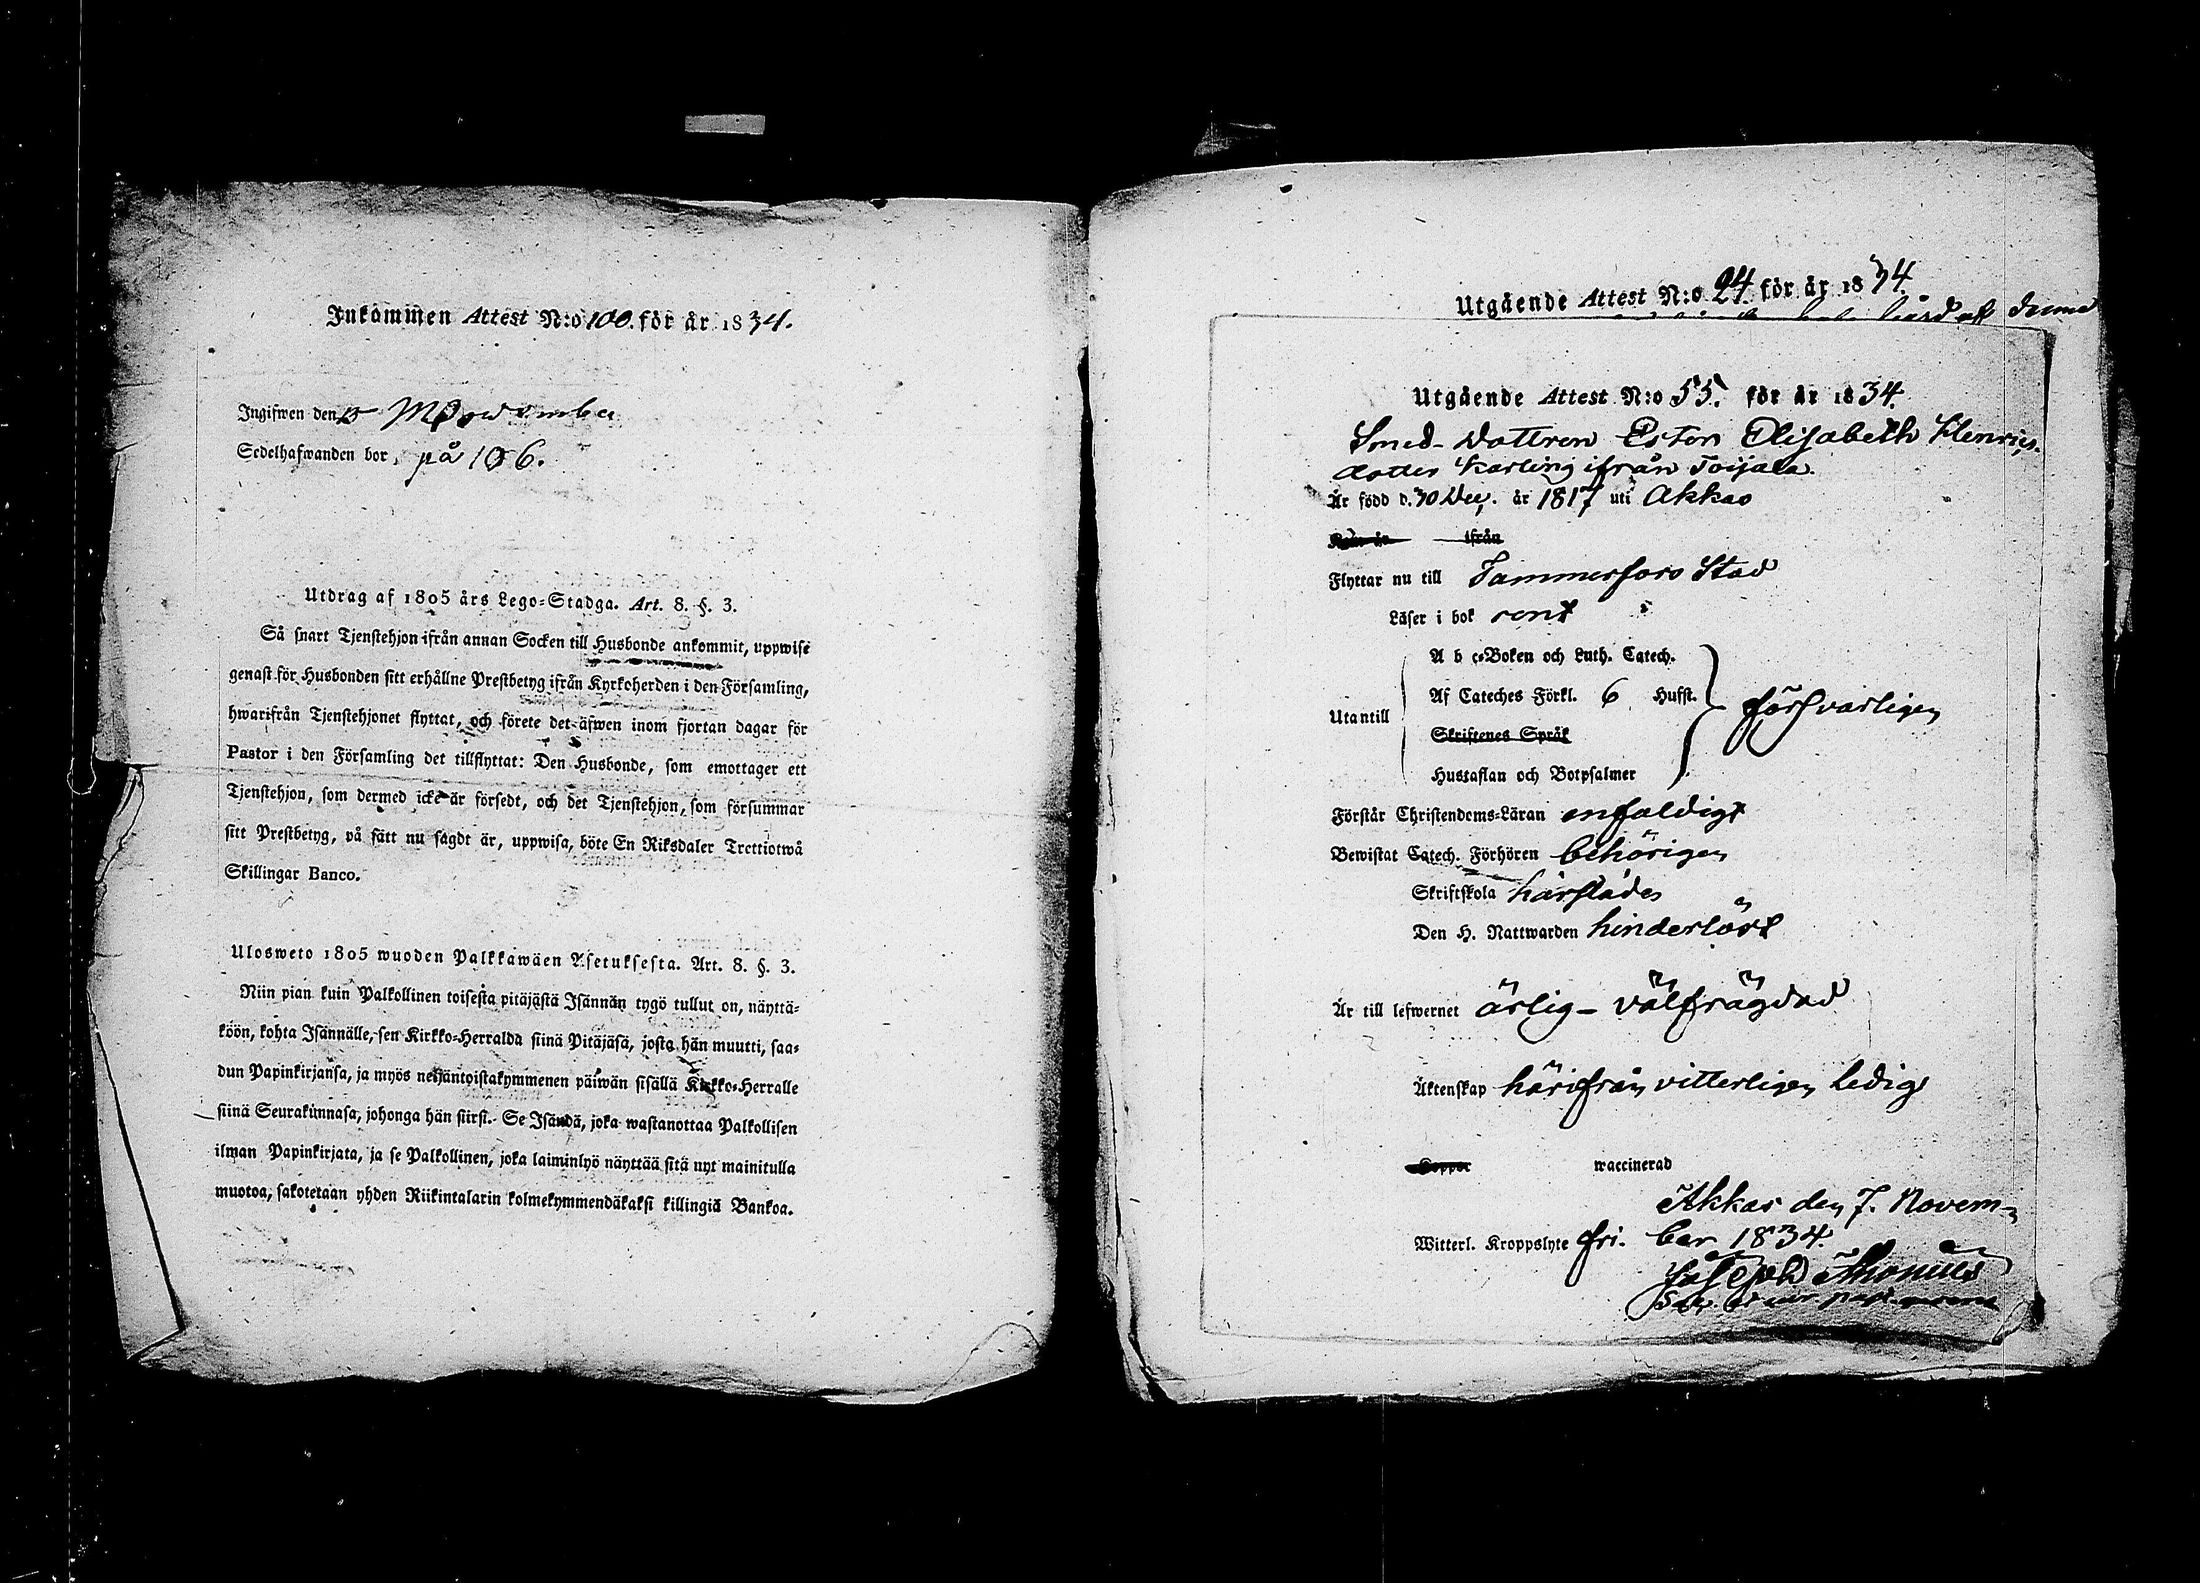 Inkommen Attest N:o 100. för år 1834.
Ingifwen den Nowember
Sedelhafwanden bor, på 106.
Utdrag af 1805 års Lego-Stadga. Art. 8. §. 3.
Så snart Tjenstehjon ifrån annan Socken till Husbonde ankommit, uppwise
genast för Husbonden sitt erhållne Prestbetyg ifrån Kyrkoherden i den Församling,
hwarifrån Tjenstehjonet flyttat, och förete det äfwen inom fjortan dagar för
Pastor i den Församling det tillflyttat: Den Husbonde, som emottager ett
Tjenstehjon, som dermed icke är försedt, och det Tjenstehjon, som försummar
sitt Prestbetyg, på sätt nu sagdt är, uppwisa, böte En Riksdaler Trettiotwå
Skillingar Banco.
Ulosweto 1805 wuoden Palkkawäen Asetuksesta. Art. 8. §. 3.
Niin pian kuin Palkollinen toisesta pitäjästä Isännän tygö tullut on, näyttä-
köön, kohta Isännälle, sen Kirkko-Herralda siinä Pitäjäsä, josta hän muutti, saa-
dun Papinkirjansa, ja myös neljäntoistakymmenen päiwän sisällä Kirkko-Herralle
siinä Seurakunnasa, johonga hän siirsi. Se Isändä, joka wastanottaa Palkollisen
ilman Papinkirjata, ja se Palkollinen, joka laiminlyö näyttää sitä nyt mainitulla
muotoa, sakotetaan yhden Riikintalarin kolmekymmendäkaksi killingiä Bankoa.
Utgående Attest N:o 24 för år 1834.
denna
Utgående Attest N:o 55. för år 1834.
Smed-Dottren Ester Elisabeth Henrics-
dotter Karling ifrån Toijala.
Är född d. 30 Dec. år 1817 uti Akkas
Kom år ifrån
Flyttar nu till Tammerfors Stad
Läser i bok rent
A b c-Boken och Luth. Catech.
Af Cateches Förkl. 6 Hufst.
Utantill försvarligen
Skriftenes Språk
Hustaflan och Botpsalmer
Förstår Christendoms-Läran enfaldigt
Bewistat Catech. Förhören behörigen
Skriftskola härstädes
Den H. Nattwarden hinderlöst
Är till lefwernet ärlig - välfrägdad
Äktenskap härifrån vitterligen ledig
Koppor waccinerad
Akkas den 7. Novem-
Witterl. Kroppslyte fri. ber 1834.
Joseph